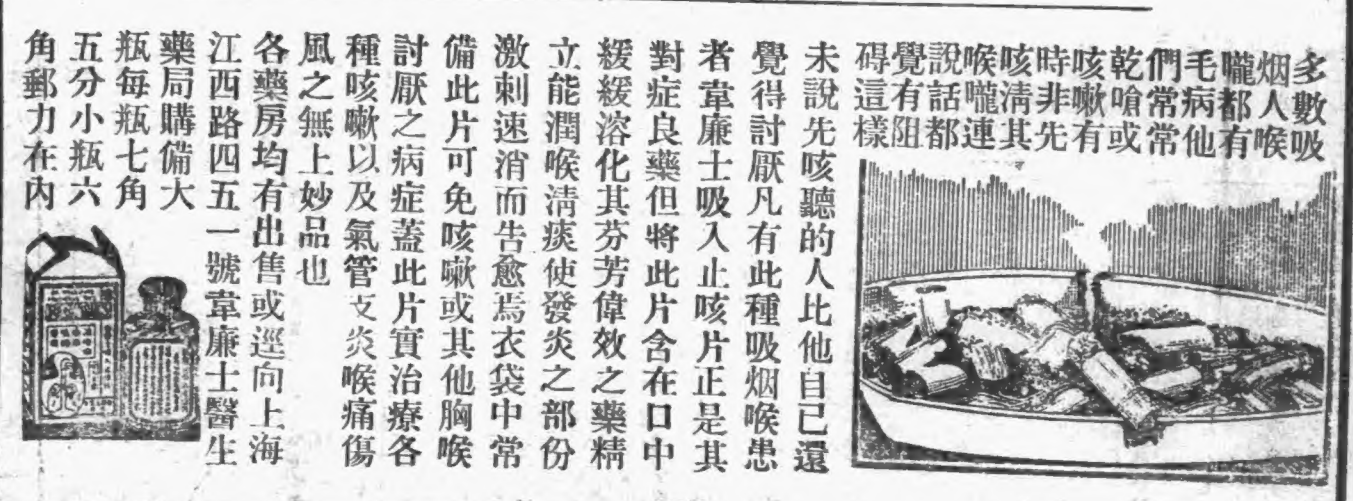 多數吸
烟人喉
嚨都有
毛病他
們常常
乾嗆或
咳嗽有
時非先
咳清其
喉嚨連
說話都
覺有阻
碍這樣
未說先咳聽的人比他自己還
覺得討厭凡有此種吸烟喉患
者韋廉士吸入止咳片正是其
對症良藥但將此片含在口中
緩緩溶化其芬芳偉效之藥精
立能潤喉清痰使發炎之部份
激刺速消而告愈焉衣袋中常
備此片可免咳嗽或其他胸喉
討厭之病症蓋此片實治療各
種咳嗽以及氣管支炎喉痛傷
風之無上妙品也
各藥房均有出售或逕向上海
江西路四五一號韋廉士醫生
藥局購備大
瓶每瓶七角
五分小瓶六
角郵力在內